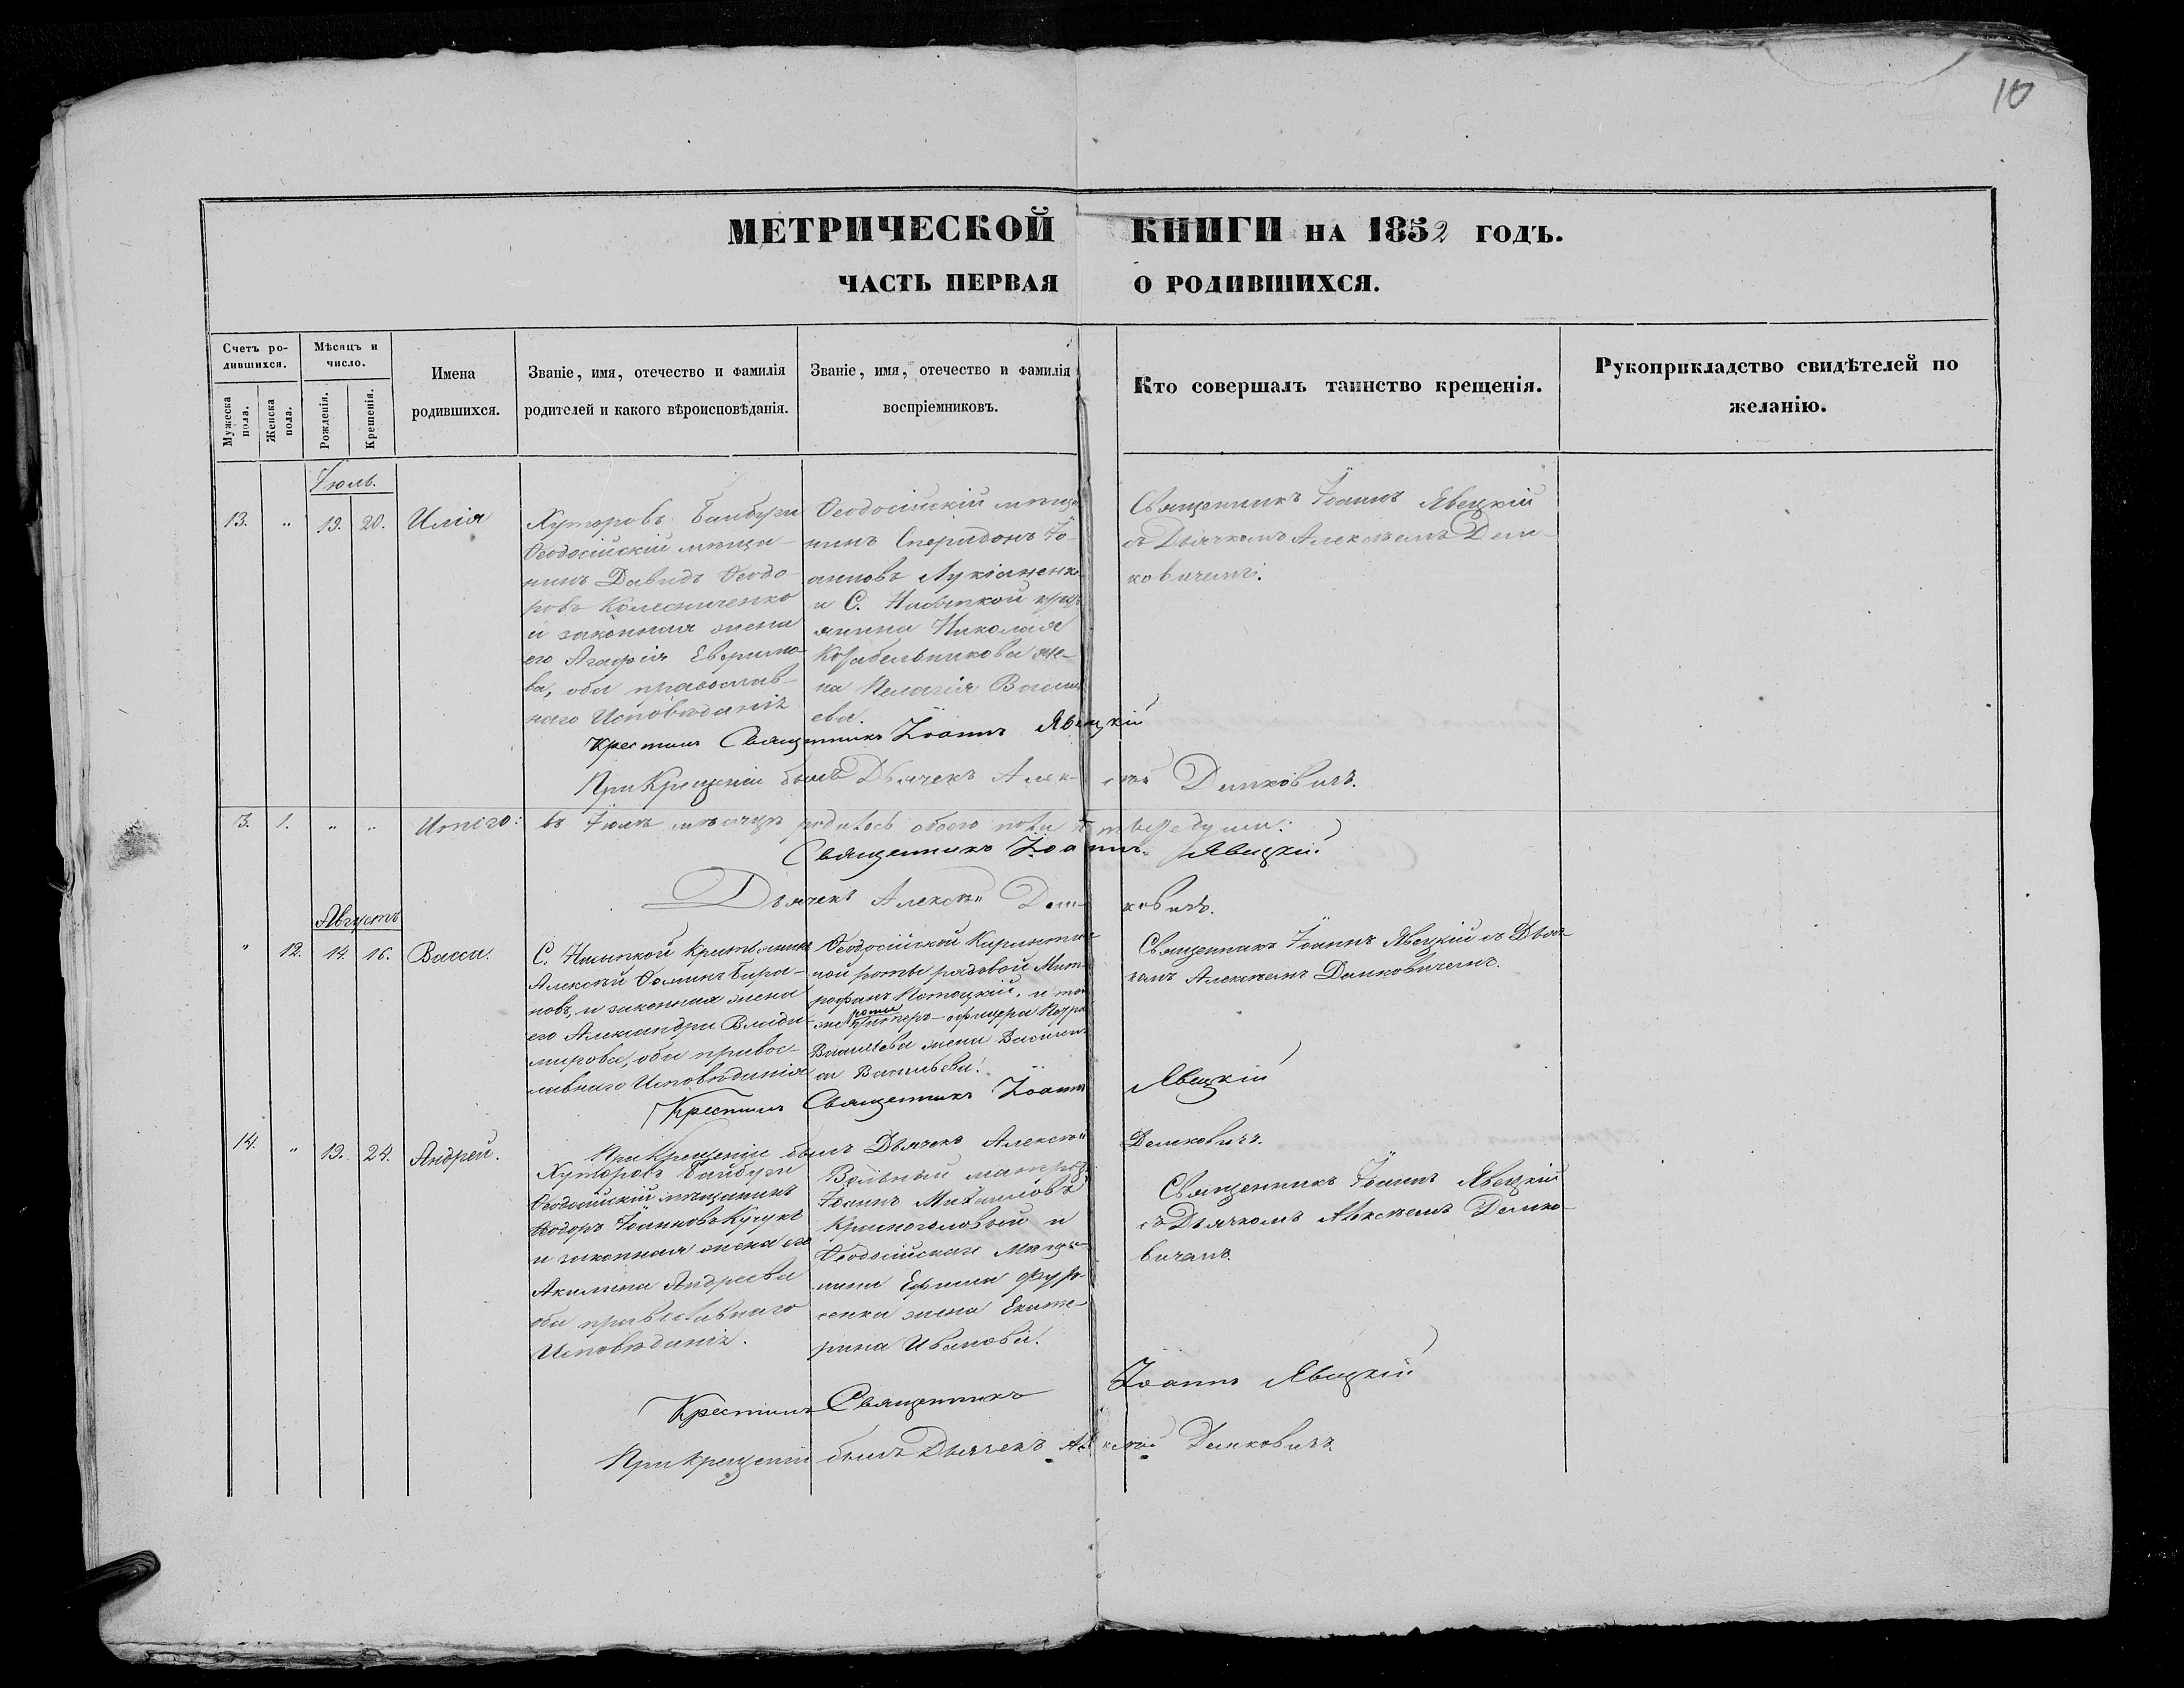 10
МЕТРИЧЕСКОЙ КНИГИ НА 1852 ГОДЪ.
ЧАСТЬ ПЕРВАЯ О РОДИВШИХСЯ.
Счетъ ро-
дившихся.
Мужеска пола.
Женска пола.
Мѣсяцъ и
число.
Рожденія.
Крещенія.
Имена
родившихся.
Званіе, имя, отечество и фамилія
родителей и какого вѣроисповѣданія.
Званіе, имя, отечество и фамилія
воспріемниковъ.
Кто совершалъ таинство крещенія.
Рукоприкладство свидѣтелей по
желанію.
Іюль.
13. " 19. 20. Илія
Хуторовъ Байбуги
Ѳеодосійскій мѣща-
нинъ Давидъ Ѳеодо-
ровъ Колесниченко
и законная жена
его Агафія
ва, оба православ-
наго Исповѣданія
Ѳеодосійскій мѣща-
нинъ Спиридонъ Іо-
анновъ Лукіаненко
и С. Насыпкой
янина Николая
Корабельникова же-
на Пелагія
ева.
Священникъ Іоаннъ Явецкій
съ Дьячкомъ Алексѣемъ Дем-
ковичемъ.
Крестилъ Священникъ Іоаннъ Явецкій
При Крещеніи былъ Дьячекъ Алексѣй Демковичъ.
3. 1. " " Итого: въ Іюлѣ мѣсяцѣ родилось обоего пола четыре души:
Священникъ Іоаннъ Явецкій
Дьячекъ Алексѣй Демковичъ.
Августъ
" 12. 14. 16. Васса.
С. Насыпкой
Алексѣй Ѳоминъ Бара-
новъ, и законная жена
его Александра Влади-
мирова, оба правос-
лавнаго Исповѣданія
Ѳеодосійской Карантин-
ной роты рядовой Мит-
рофанъ Потоцкій, и той
же роты унтеръ-офицера
Васильева жена Василис-
са Васильева.
Священникъ Іоаннъ Явецкій съ Дьяч-
комъ Алексѣемъ Демковичемъ.
Крестилъ Священникъ Іоаннъ Явецкій
При Крещеніи былъ Дьячекъ Алексѣй Демковичъ.
14. " 19. 24. Андрей.
Хуторовъ Байбуги
Ѳеодосійскій мѣщанинъ
Ѳеодоръ Іоанновъ Кучукъ
и законная жена его
Акилина Андреева
оба православнаго
Исповѣданія.
Вольный матрозъ
Іоаннъ Михаиловъ
Красноголовый и
Ѳеодосійскаго Мѣща-
нина Ефима Фур-
сенка жена Екате-
рина Иванова.
Священникъ Іоаннъ Явецкій
съ Дьячкомъ Алексѣемъ Демко-
вичемъ.
Крестилъ Священникъ Іоаннъ Явецкій
При крещеніи былъ Дьячекъ Алексѣй Демковичъ